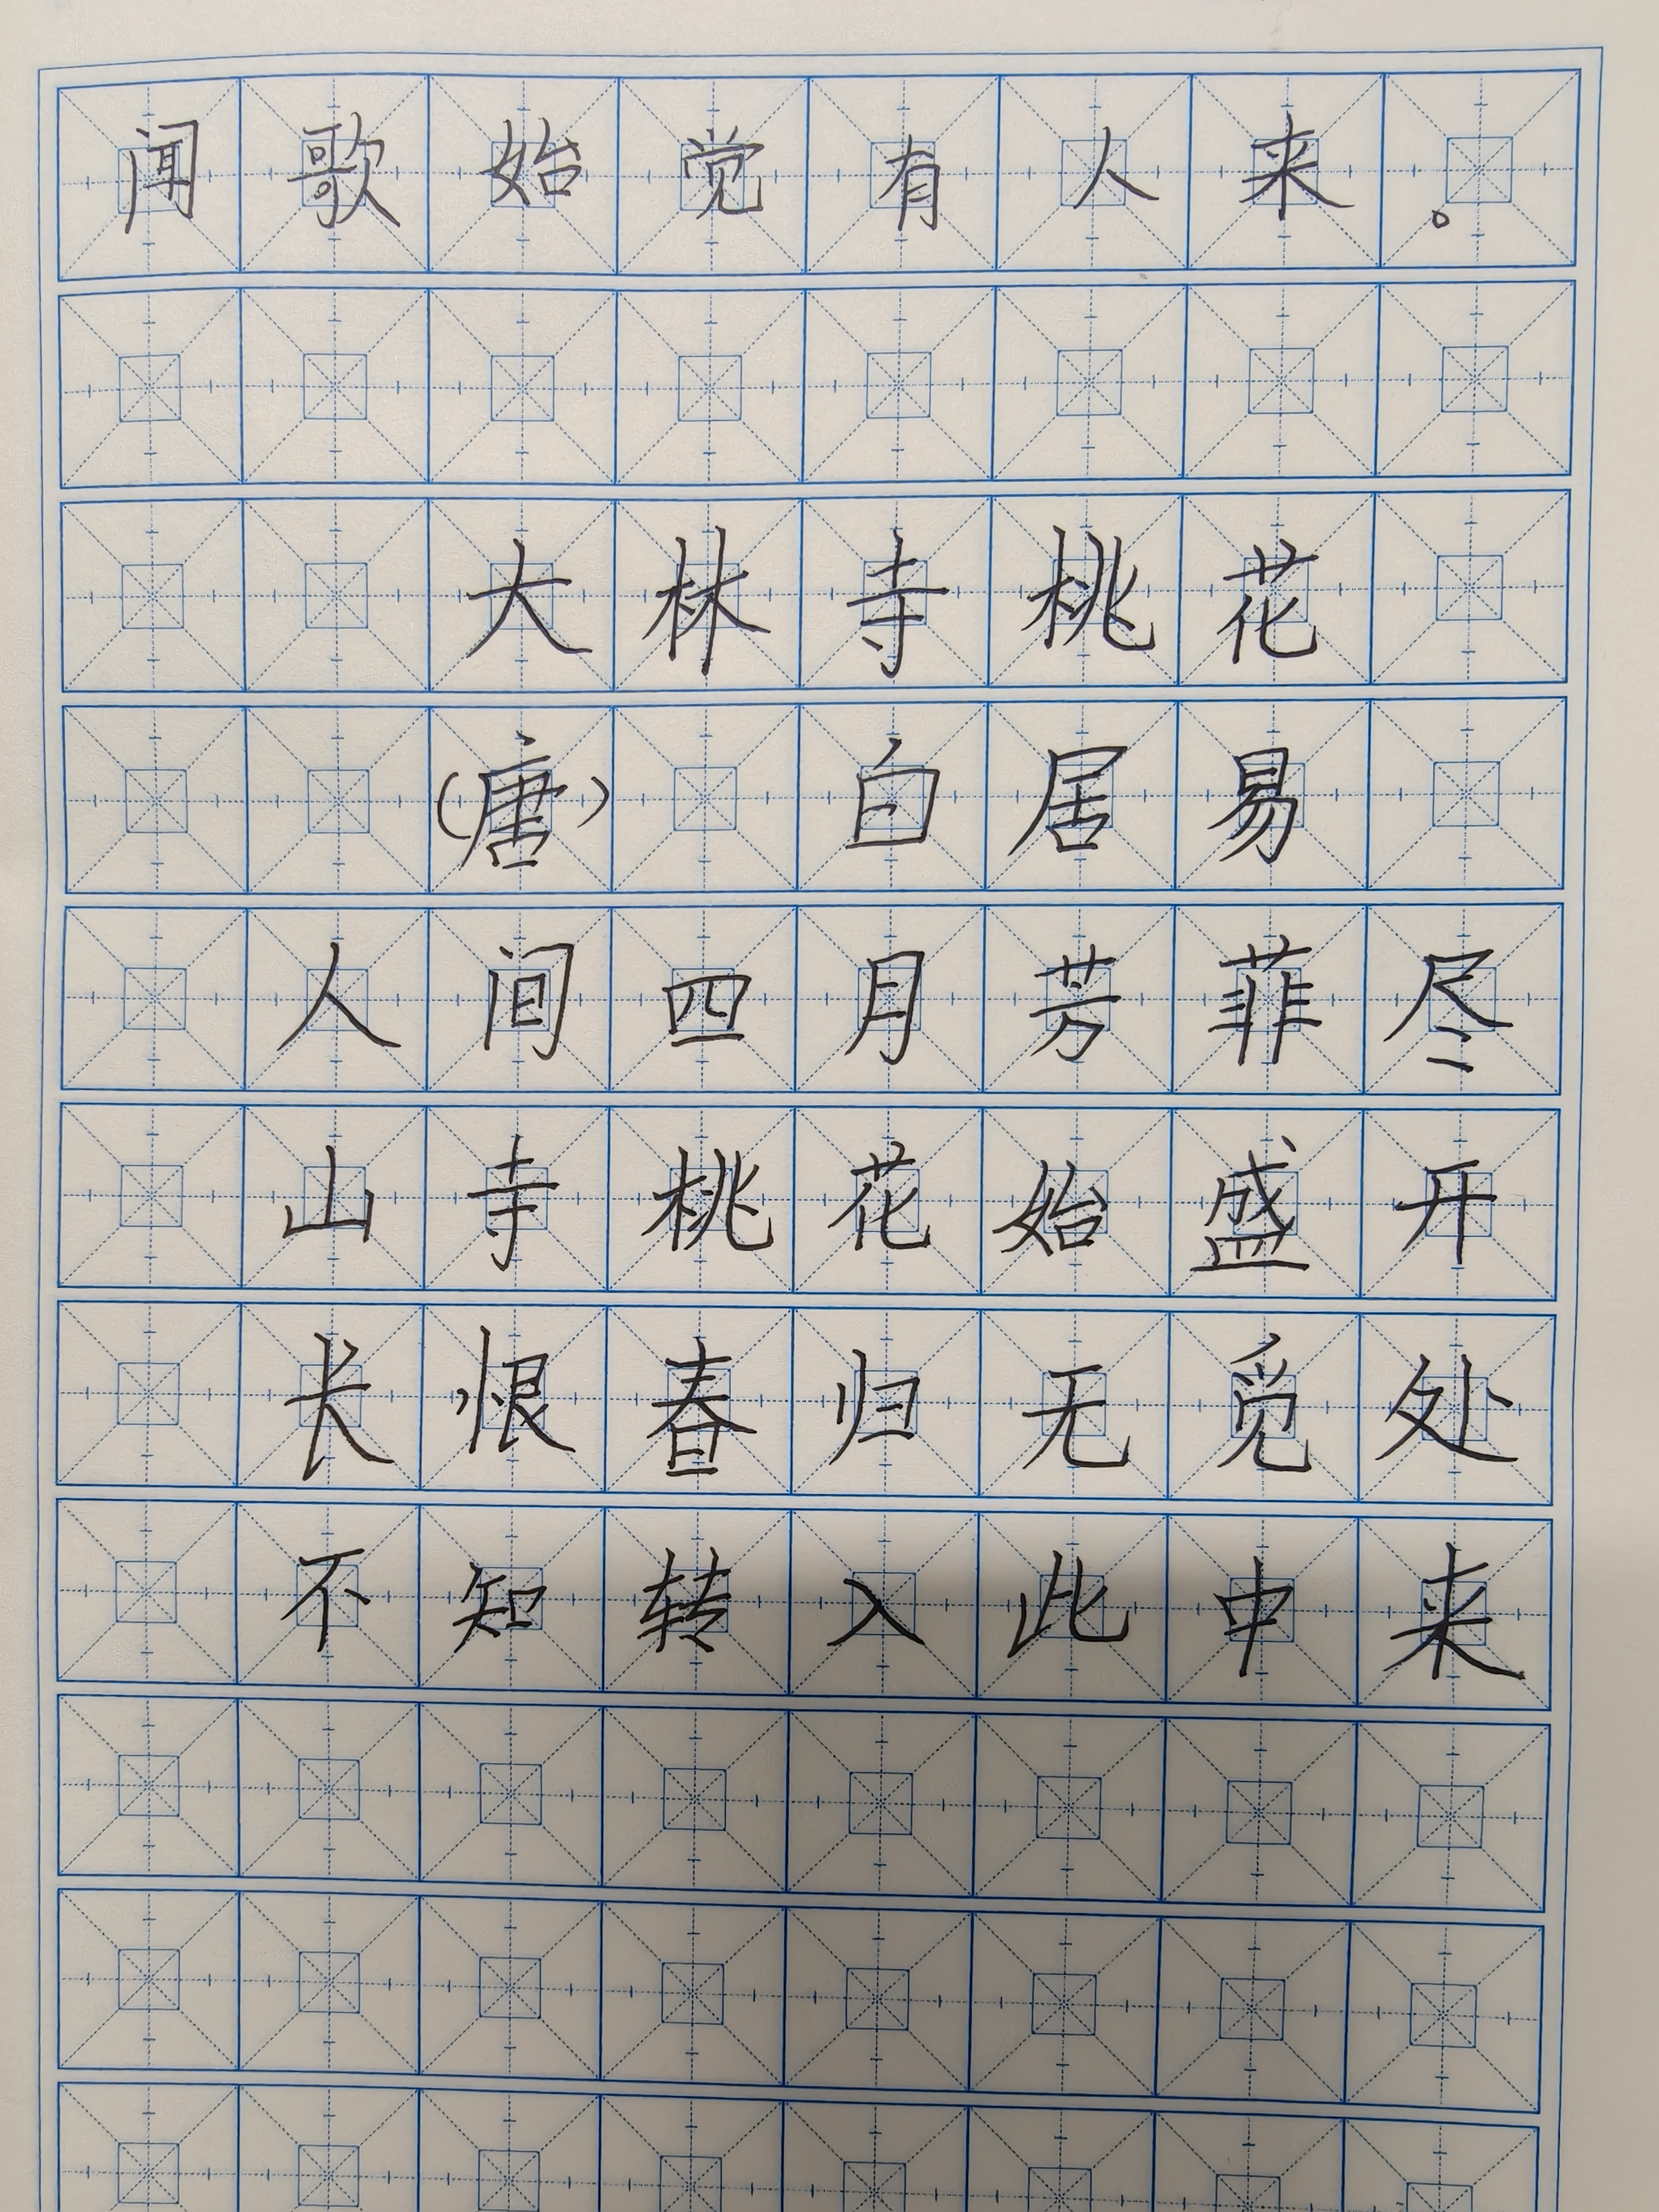 闻歌始觉有人来。
大林寺桃花
（唐） 白居易
人间四月芳菲尽
山寺桃花始盛开
长恨春归无觅处
不知转入此中来